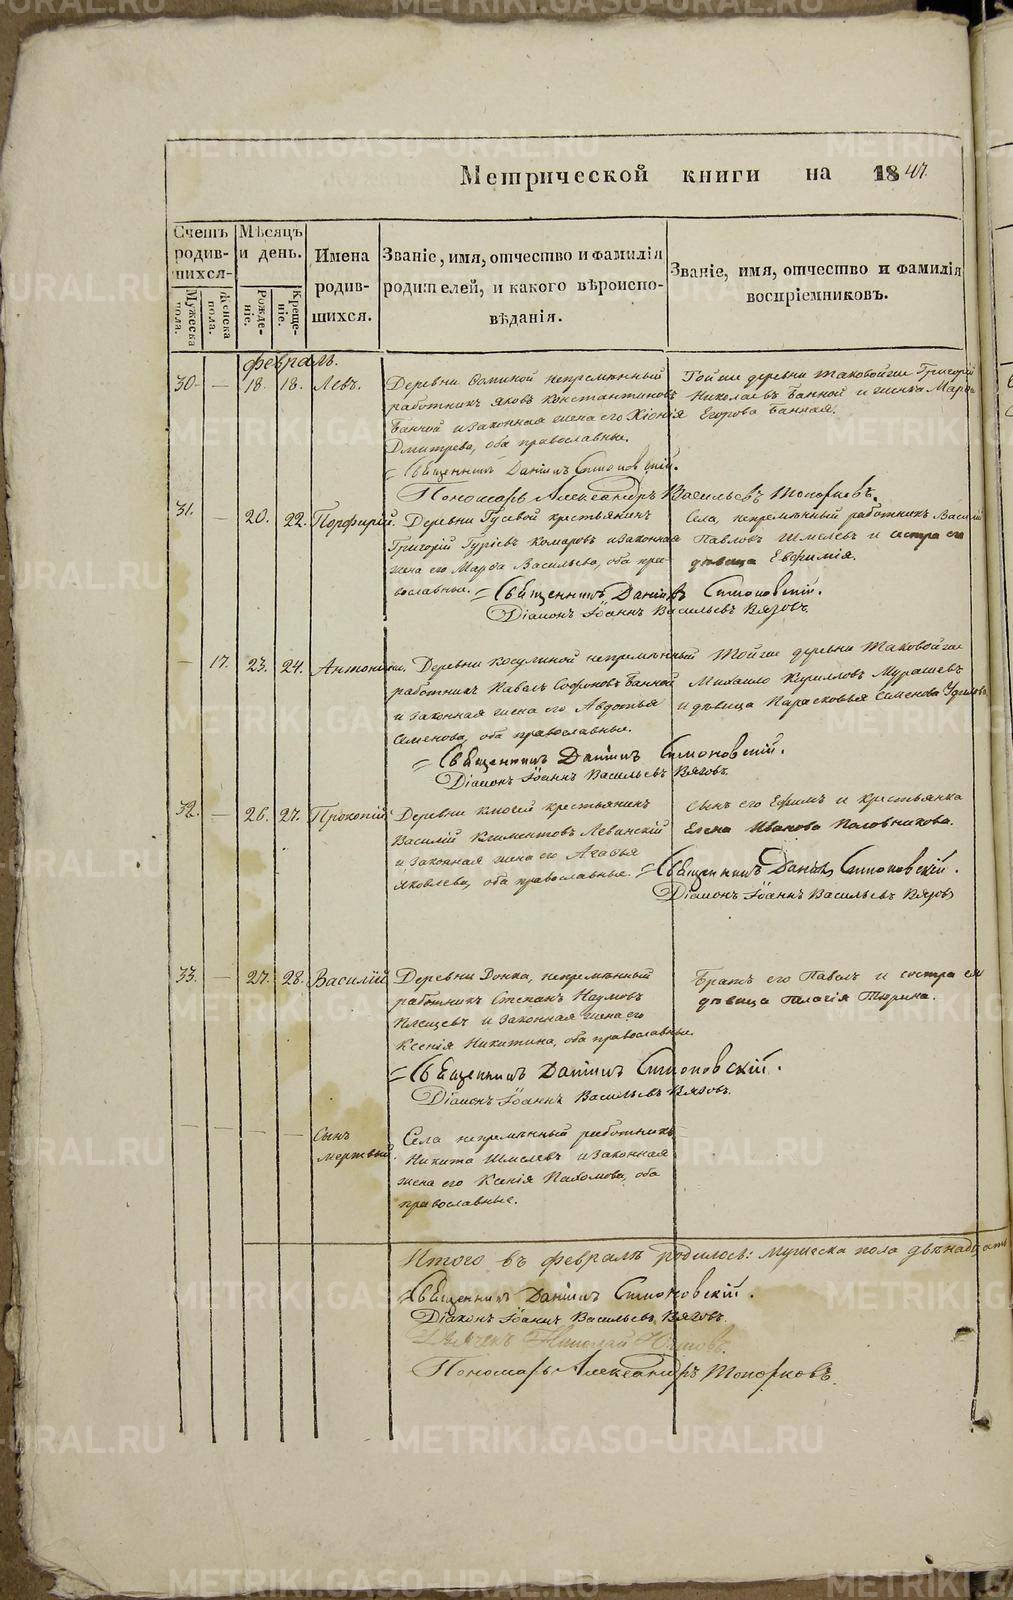 Метрической книги на 1847.
Счетъ родив-шихся.
Мѣсяцъ и день.
Имена родив-шихся.
Званіе, имя, отчество и фамилія родителей, и какого вѣроиспо-вѣданія.
Званіе, имя, отчество и фамилія воспріемниковъ.
Мужеска пола.
Женска пола.
Рожде-ніе.
Креще-ніе.
Февраль.
30. — 18. 18. Левъ.
Деревни Фоминой непремѣнный
работникъ Яковъ Константиновъ
Банной и законная жена его Хіонія
Дмитрева, оба православные.
Той же деревни таковой же Григорій
Николаевъ Банной и жена Марѳа
Егорова Банная.
Священникъ Даніилъ Симоновскій.
Пономарь Александръ Васильевъ Топорковъ.
31. — 20. 22. Порфирій.
Деревни Гусевой крестьянинъ
Григорій Гурьевъ Комаровъ и законная
жена его Марѳа Васильева, оба пра-
вославные.
Села, непремѣнный работникъ Василій
Павловъ Шмелевъ и сестра его
дѣвица Евфимія.
Священникъ Даніилъ Симоновскій.
Діаконъ Іоаннъ Васильевъ Вязовъ.
— 17. 23. 24. Антонина.
Деревни Косулиной непремѣнный
работникъ Павелъ Софоновъ Банной
и законная жена его Авдотья
Семенова, оба православные.
Той же деревни таковой же
Михаило Кириловъ Мурашевъ
и дѣвица Парасковья Семенова
Священникъ Даніилъ Симоновскій.
Діаконъ Іоаннъ Васильевъ Вязовъ.
32. — 26. 27. Прокопій.
Деревни крестьянинъ
Василій Климентовъ Левинскій
и законная жена его Агафья
Яковлева, оба православные.
Сынъ его Ефимъ и крестьянка
Елена Иванова Половникова.
Священникъ Даніилъ Симоновскій.
Діаконъ Іоаннъ Васильевъ Вязовъ
33. — 27. 28. Василій.
Деревни непремѣнный
работникъ Степанъ Наумовъ
и законная жена его
Ксенія Никитина, оба православные.
Братъ его Павелъ и сестра его
дѣвица Пелагія Тюрина.
Священникъ Даніилъ Симоновскій.
Діаконъ Іоаннъ Васильевъ Вязовъ.
— — — — Сынъ мертвый.
Села непремѣнный работникъ
Никита Шмелевъ и законная
жена его Ксенія Пахомова, оба
православные.
Итого въ февралѣ родилось: мужеска пола двѣнадцать
Священникъ Даніилъ Симоновскій.
Діаконъ Іоаннъ Васильевъ Вязовъ.
Дьячекъ Николай
Пономарь Александръ Топорковъ.
METRIKI.GASO-URAL.RU